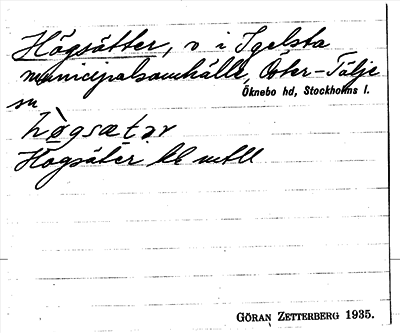 Högsätter, v i Igelsta
municipalsamhälle, Öster-Tälje
sn Öknebo hd, Stockholms l.
hø̀gsætər
Högsäter
GÖRAN ZETTERBERG 1935.